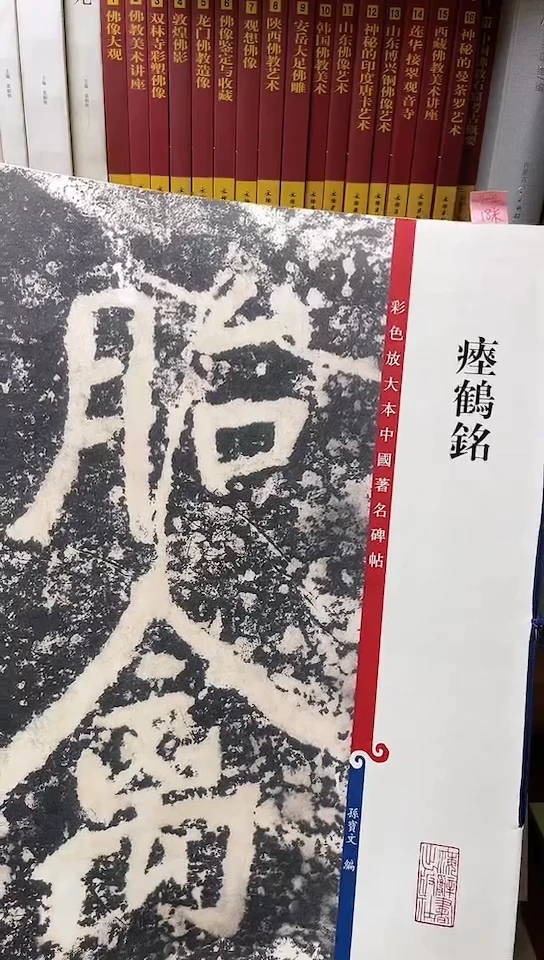 1 佛像大观
2 佛教美术讲座
3 双林寺彩塑佛像
4 敦煌佛影
5 龙门佛教造像
6 佛像鉴定与收藏
7 观想佛像
8 陕西佛教艺术
9 安岳大足佛雕
10 韩国佛教美术
11 山东佛像艺术
12 神秘的印度唐卡艺术
13 山东博兴铜佛像艺术
14 莲华接翠观音寺
15 西藏佛教美术讲座
16 神秘的曼荼罗艺术
瘞鶴銘
彩色放大本中國著名碑帖
孫寶文 編
胎
上海辭書出版社